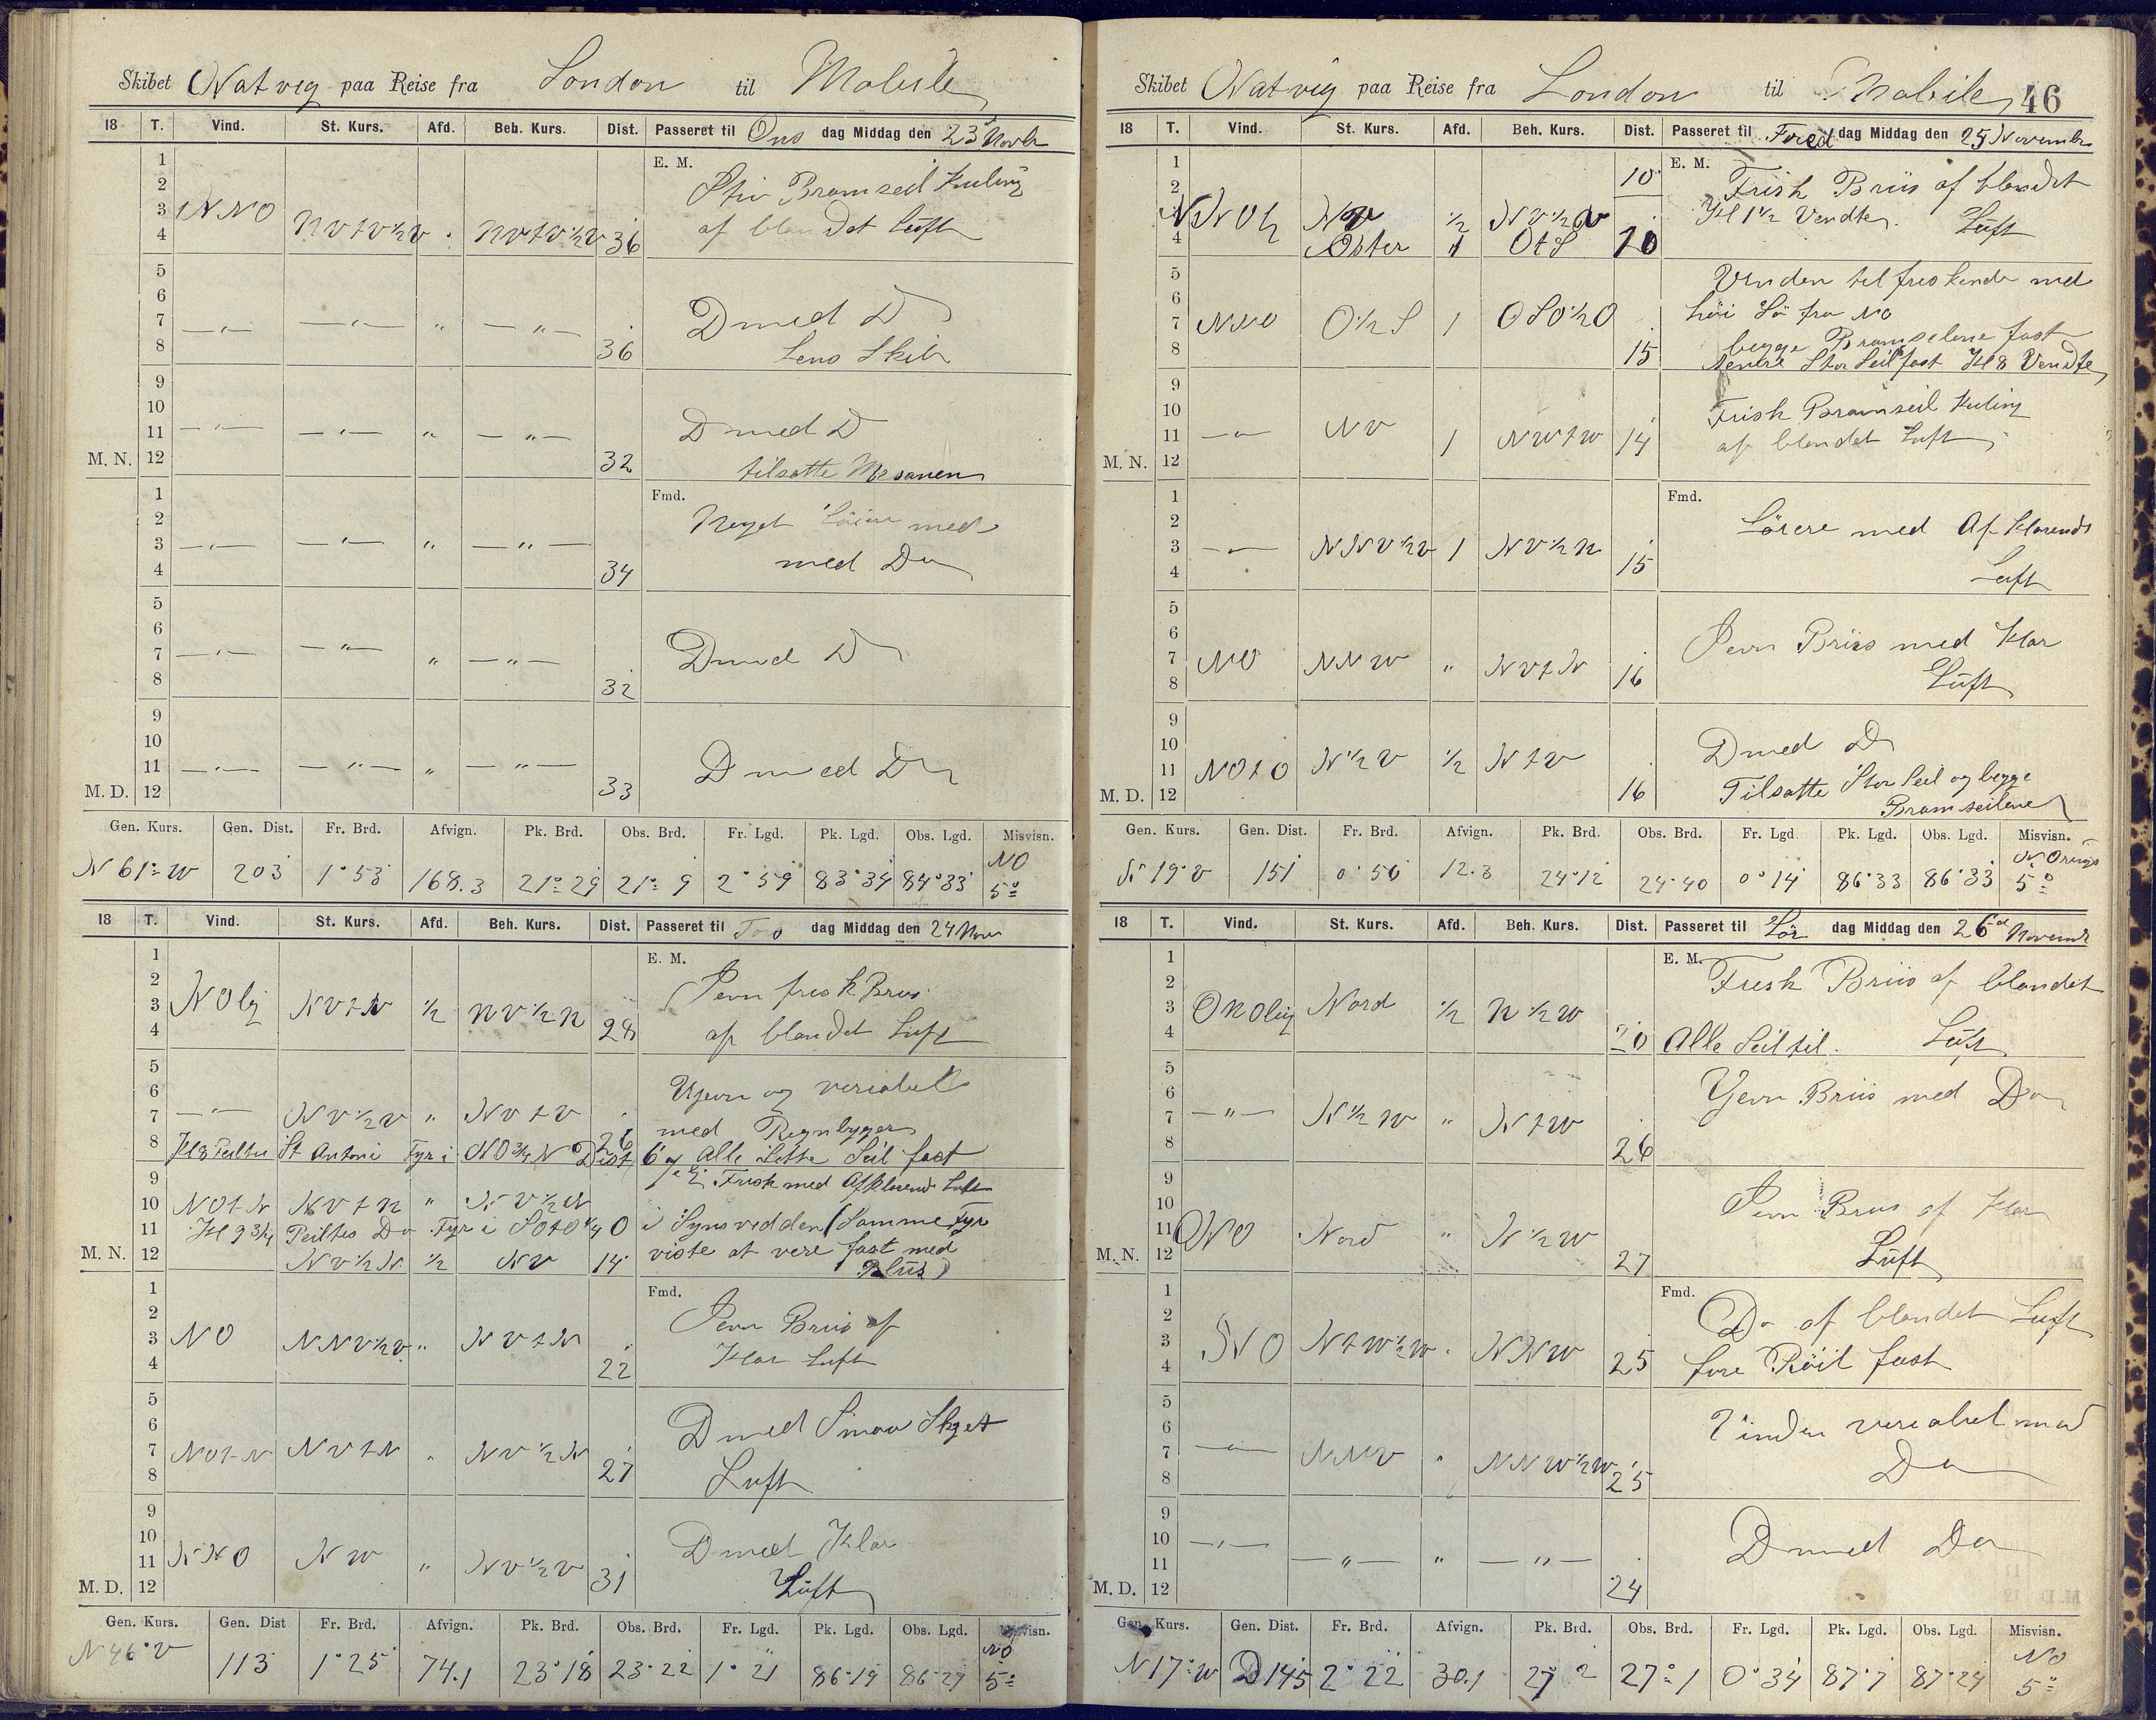 Skibet Natvig paa Reise fra London til Mobile
18 T. Vind. St. Kurs. Afd. Beh. Kurs. Dist. Passeret til Ons dag Middag den 23 Novbr
E. M.
1
2
3 NNO
4 NVtV½V NVtV½V 36
Stiv Bramseil Kuling
af blandet Luft
5
6
7 —"— —"— " —"—
8 36
D med D
Lens Skib
9
10
11 —"— —"— " —"—
M. N. 12 32
D med D
tilsatte Mesanen
Fmd.
1
2
3 —"— —"— " —"—
4 34
Noget Löiere med
med Do
5
6
7 —"— —"— " —"—
8 32
D med D
9
10
11 —"— —"— " —"—
M. D. 12 33
D med Do
Gen. Kurs. Gen. Dist. Fr. Brd. Afvign. Pk. Brd. Obs. Brd. Fr. Lgd. Pk. Lgd. Obs. Lgd. Misvisn.
N 61° W 203 1° 53 168.3 21° 29 21° 9 2° 59 83° 34 84° 33 NO 5°
18 T. Vind. St. Kurs. Afd. Beh. Kurs. Dist. Passeret til Tors dag Middag den 24 Nov
E. M.
1
2
3 NOlig NVtN ½ NV½N
4 28
Jevn frisk Bris
af blandet Luft
5
6
7 —"— NV½V " NVtV
8 26
Ujevn og veriabel
med Regnbyger
Kl 8 Peiltes St Antoni Fyr i ONO¾N Dist 6 alle Lette Seil fast
9 Frisk med Afklarend Luft
10 NOtN NVtN " NV½N
11 Kl 9¾ Peiltes Do Fyr i SOtO¼O i Synsvidden (Samme Fyr
M. N. 12 NV½N ½ NV 14
viste at vere fast med
Blüs)
Fmd.
1
2
3 NO NNV½V " NVtN
4 22
Jevn Briis af
Klar Luft
5
6
7 NOtN NVtN " NV½N
8 27
D med Smaa Skyet
Luft
9
10
11 NNO NW " NV½V
M. D. 12 31
D med Klar
Lüft
Gen. Kurs. Gen. Dist Fr. Brd. Afvign. Pk. Brd. Obs. Brd. Fr. Lgd. Pk. Lgd. Obs. Lgd. Misvisn.
N 46° V 113 1° 25 74.1 23° 18 23° 22 1° 21 86° 19 86° 27 NO 5°
Skibet Natvig paa Reise fra London til Mobile 46
18 T. Vind. St. Kurs. Afd. Beh. Kurs. Dist. Passeret til Fred dag Middag den 25 November
E. M.
1
2 10
3 NNOlig NV ½ NV½V
4 Öster 1 OtS 10
Frisk Briis af blandet
Kl 1½ Vendte. Lüft
5
6
7 NNO O½S 1 OSO½O
8 15
Vinden tilfreskende med
höi Sö fra NO
begge Bramseilene fast
Nedre Stor Seil fast Kl 8 Vendte
9
10
11 —"— NV 1 NWtW 14
M. N. 12
Frisk Bramseil Kuling
af blandet Luft
Fmd.
1
2
3 —"— NNV½V 1 NV½N
4 15
Löiere med Afklarende
Luft
5
6
7 NO NNW " NVtN
8 16
Jevn Briis med Klar
Lüft
9
10
11 NOtO N½V ½ NtV
M. D. 12 16
D med Do
Tilsatte Stor Seil og begge
Bramseilene
Gen. Kurs. Gen. Dist. Fr. Brd. Afvign. Pk. Brd. Obs. Brd. Fr. Lgd Pk. Lgd. Obs. Lgd. Misvisn.
N 19° V 151 0° 50 12.3 24° 12 24° 40 0° 14 86° 33 86° 33 5°
18 T. Vind. St. Kurs. Afd. Beh. Kurs. Dist. Passeret til Lör dag Middag den 26 Novemb
E. M.
1
2
3 ONOlig Nord ½ N½W
4 20
Fresk Briis af blandet
Alle Seil til. Lüft
5
6
7 —"— N½W " NtW
8 26
Jevn Briis med Do
9
10
11 ONO Nord " N½W
M. N. 12 27
Jevn Briis af Klar
Lüft
Fmd.
1
2
3 NO NtW½W " NNW
4 25
Do af blandet Luft
fore Röil fast
5
6
7 —"— NNV " NNW½W
8 25
Vinden veriabel med
Do
9
10 —"—
11 —"— " —"—
M. D. 12 24
D med Do
Gen. Kurs. Gen. Dist. Fr. Brd. Afvign. Pk. Brd. Obs. Brd. Fr. Lgd. Pk. Lgd. Obs. Lgd. Misvisn.
N 17° W D 145 2° 22 30.1 27 2 27° 1 0° 34 87° 7 87° 24 NO 5°